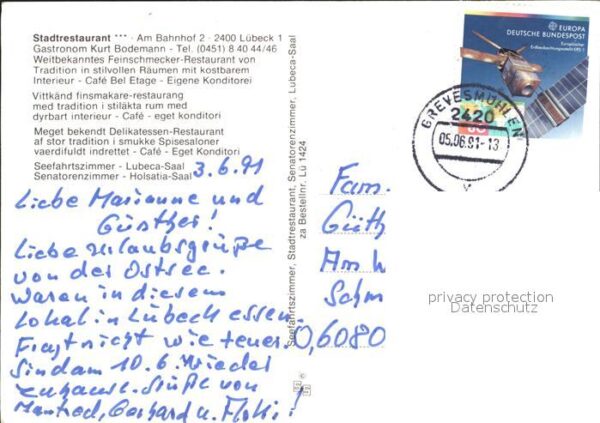 Stadtrestaurant *** · Am Bahnhof 2 · 2400 Lübeck 1
Gastronom Kurt Bodemann - Tel. (0451) 8 40 44/46
Weitbekanntes Feinschmecker-Restaurant von
Tradition in stilvollen Räumen mit kostbarem
Interieur - Café Bel Etage - Eigene Konditorei
Vittkänd finsmakare-restaurang
med tradition i stiläkta rum med
dyrbart interieur - Café - eget konditori
Meget bekendt Delikatessen-Restaurant
af stor tradition i smukke Spisesaloner
vaerdifuldt indrettet - Café - Eget Konditori
Seefahrtszimmer - Lubeca-Saal
Senatorenzimmer - Holsatia-Saal
3.6.91
Liebe Marianne und
Günther!
Liebe Urlaubsgrüße
von der Ostsee.
Waren in diesem
Lokal in Lübeck essen.
Fragt nicht wie teuer.
Sind am 10.6. wieder
zuhause. Grüße von
Manfred, Gerhard u.
Seefahrtszimmer, Stadtrestaurant, Senatorenzimmer, Lubeca-Saal
za Bestellnr. Lü 1424
EUROPA
DEUTSCHE BUNDESPOST
Europäischer
Erdbeobachtungssatellit ERS-1
GREVESMÜHLEN
2420
05.06.91-13
Fam.
Güth
Am h
Schm
0,6080
privacy protection
Datenschutz